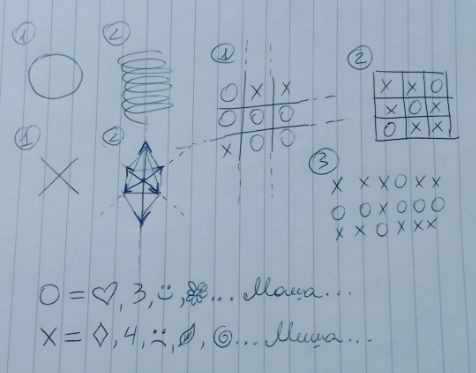 1 2
1 2
1
O X X
O O O
X O O
2
X X O
X O X
O X X
3
X X X O X X
O O X O O O
X X O X X X
O = ♡, 3, ☺, ❀... Маша...
X = ◇, 4, ☹, , ... Миша...